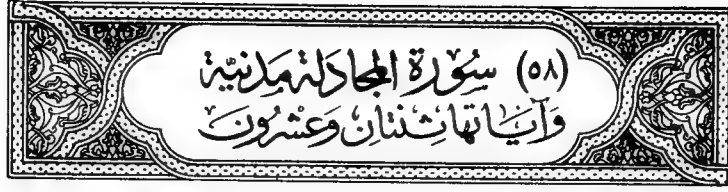 (٥٨) سُورَة المجَادلَة مَدنيَّة
وَآيَاتهَا ثِنتَانِ وَعشرُونَ